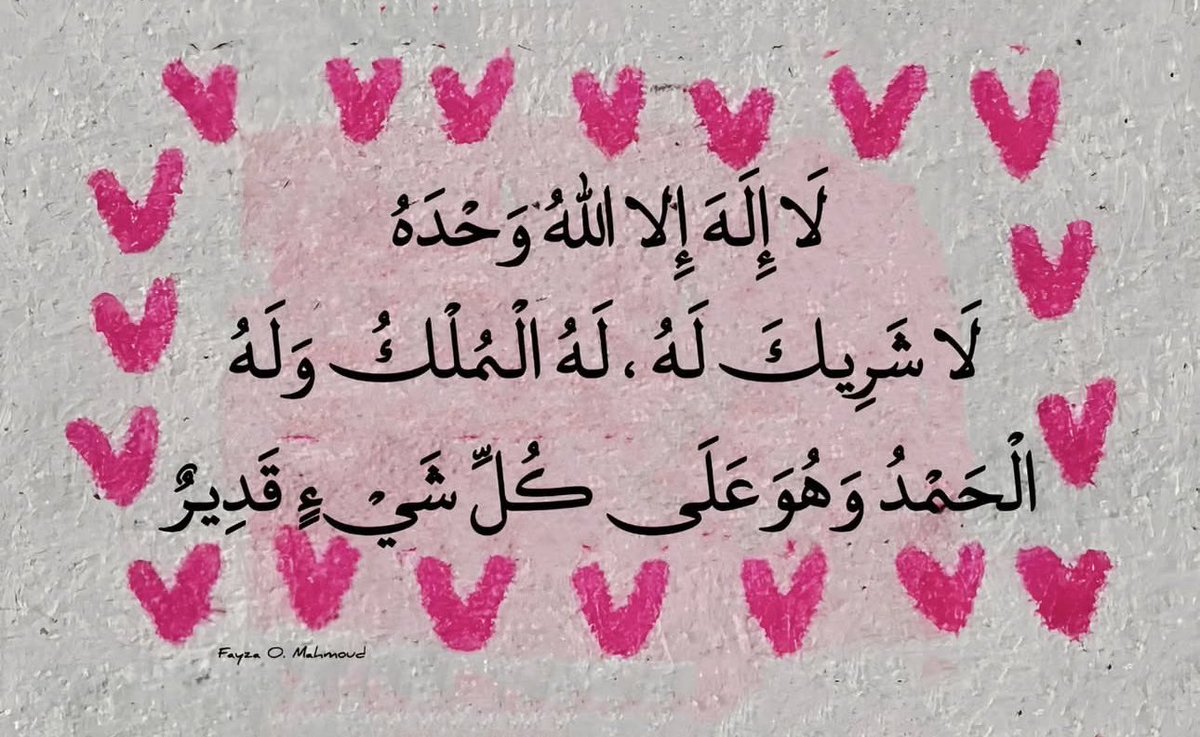 لَا إِلَهَ إِلا اللهُ وَحْدَهُ
لَا شَرِيكَ لَهُ ، لَهُ الْمُلْكُ وَلَهُ
الْحَمْدُ وَهُوَ عَلَى كُلِّ شَيْءٍ قَدِيرٌ
Fayza O. Mahmoud